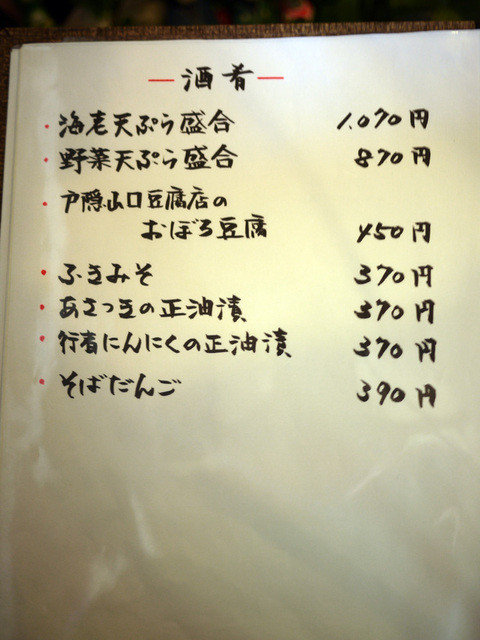 酒肴
・海老天ぷら盛合 1,070円
・野菜天ぷら盛合 870円
・戸隠山口豆腐店の
おぼろ豆腐 450円
・ふきみそ 370円
・あさつきの正油漬 370円
・行者にんにくの正油漬 370円
・そばだんご 390円